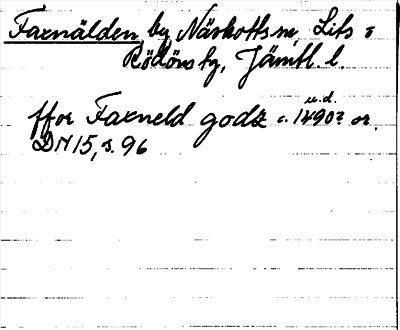 Faxnälden, by Näskotts sn, Lits o
Rödöns tg, Jämtl. l.
u.d.
ffor Faxneld godz c. 1490? or.
DN 15, s. 96